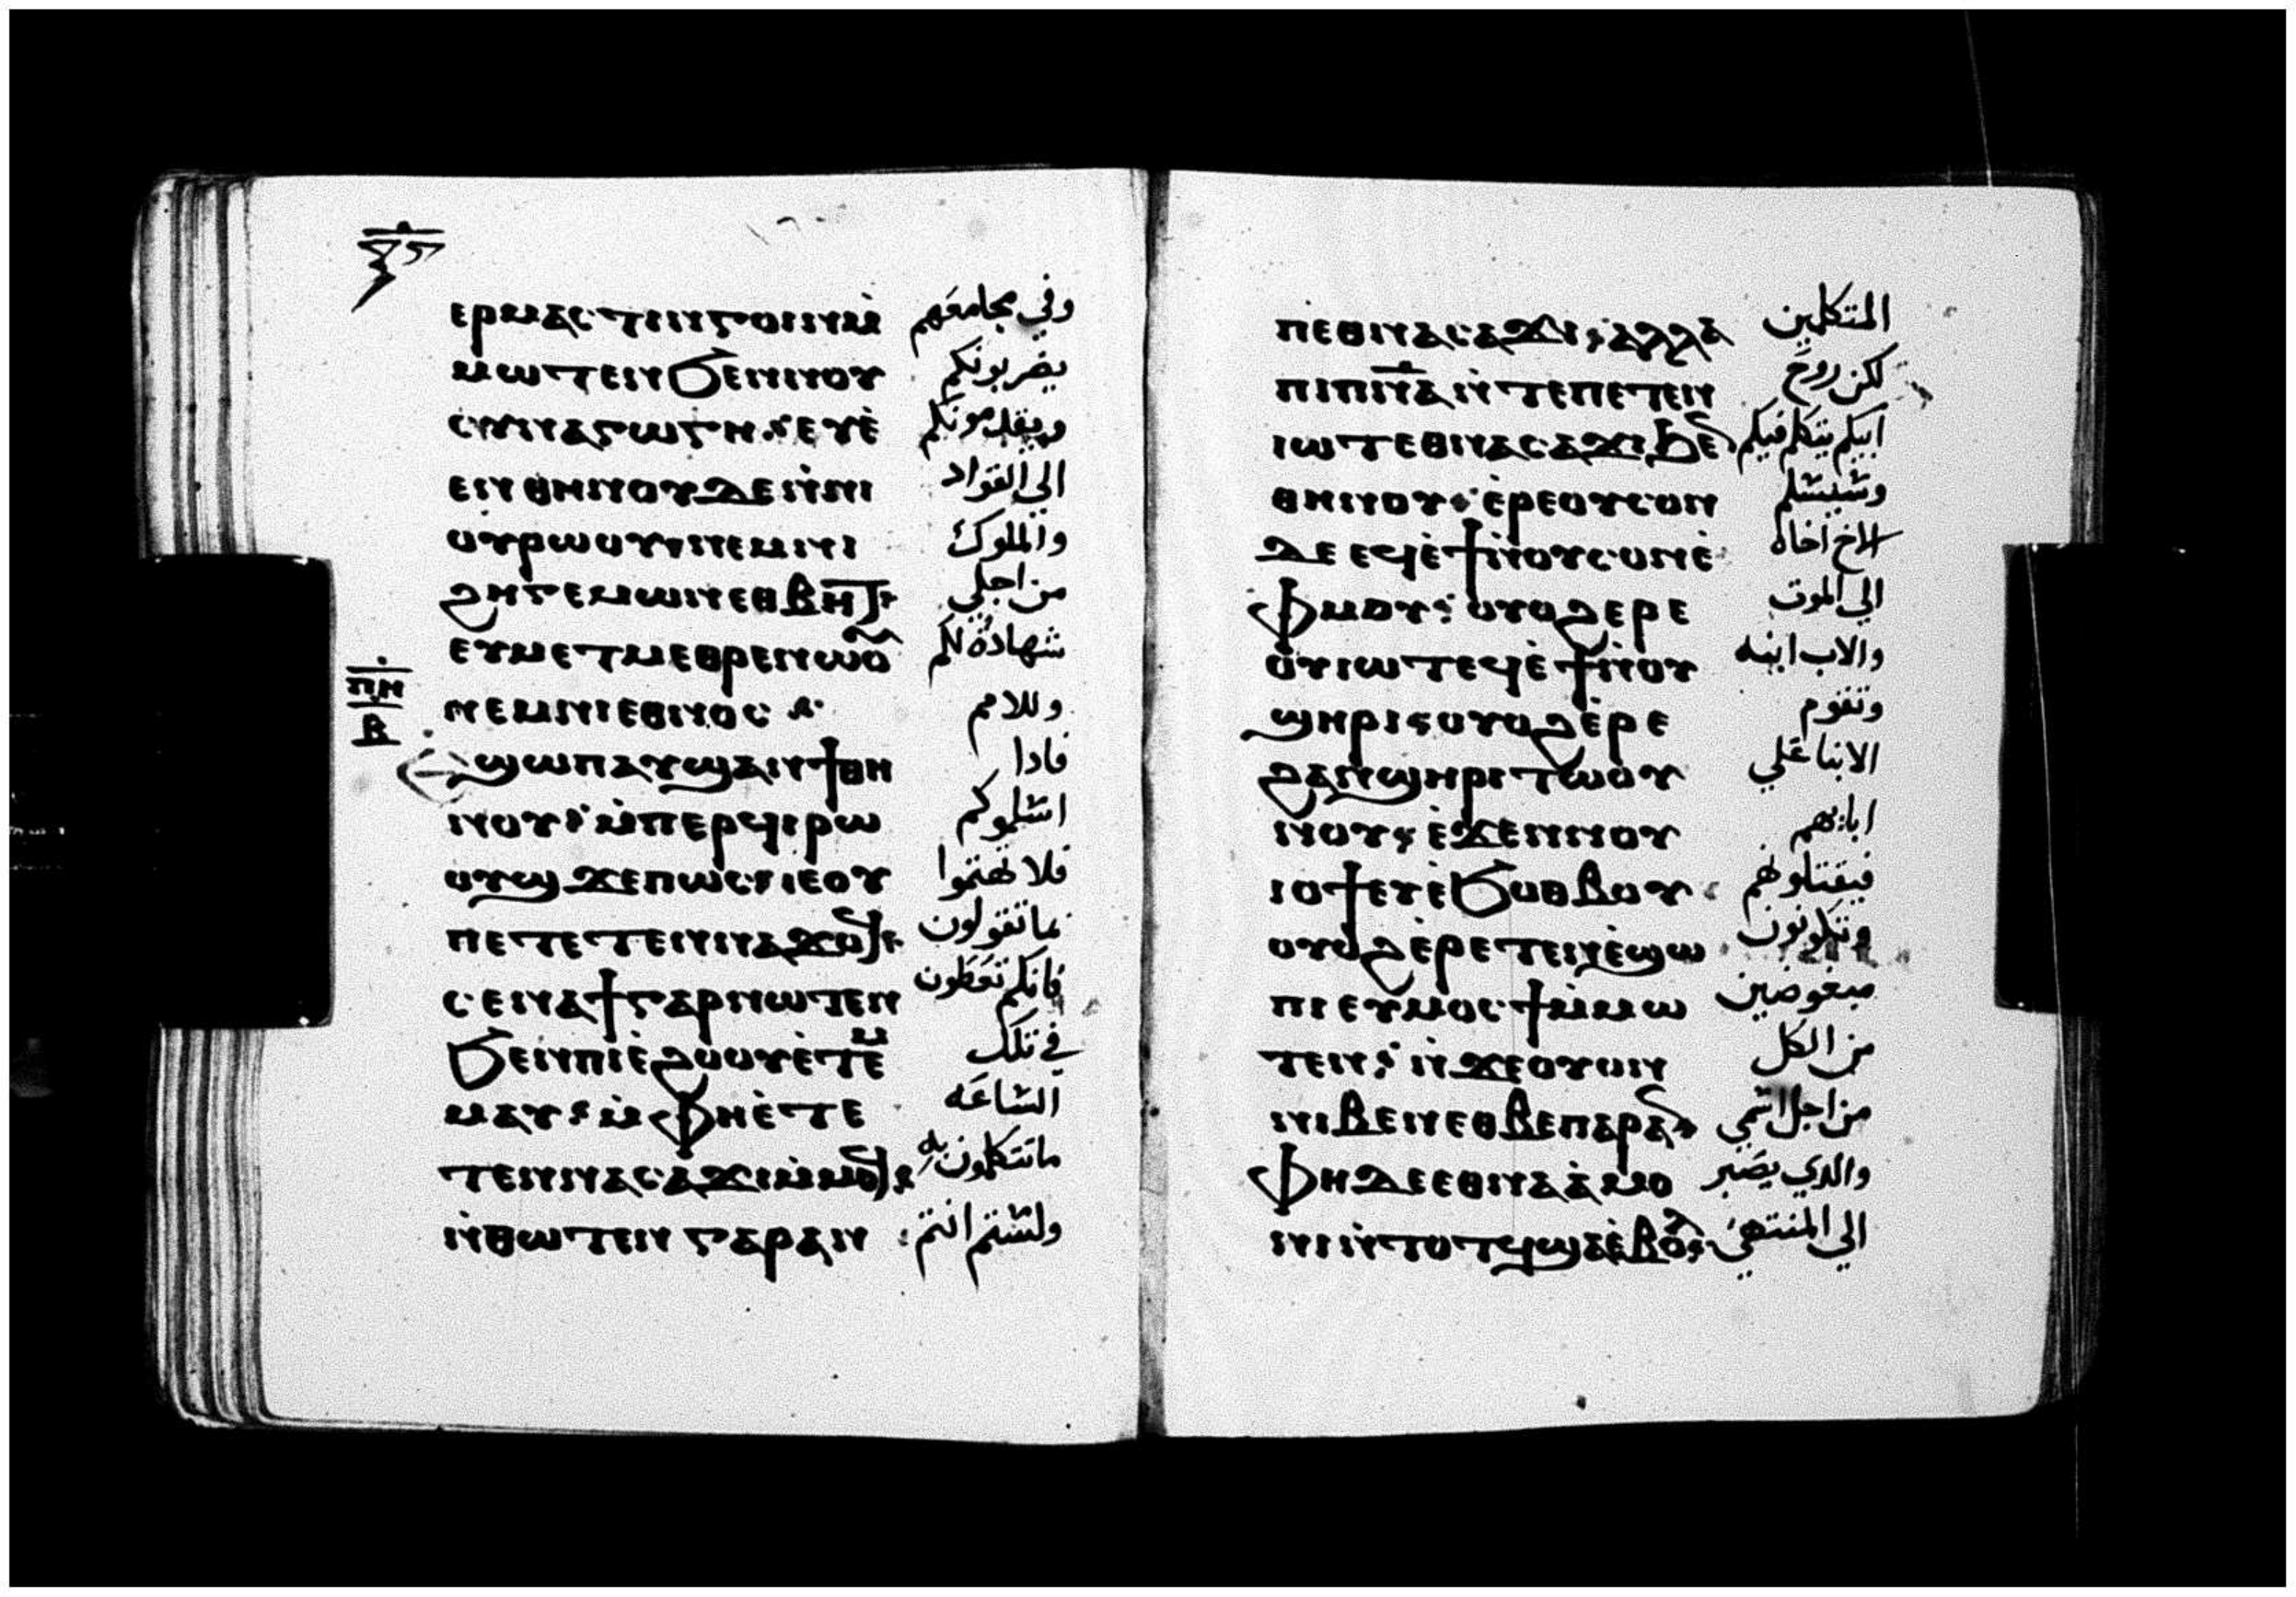 ⲝⲋ
ⲉⲣⲙⲁⲥⲧⲓⲅⲅⲟⲓⲛⲙ̀ وفي مجامعهم
ⲙⲱⲧⲉⲛ ϧⲉⲛⲛⲟⲩ يضربونكم
ⲥⲩⲛⲁⲅⲱⲅⲏ ⲉⲩⲉ̀ ويقدمونكم
ⲉⲛ ⲑⲏⲛⲟⲩ ⲇⲉ ⲛ̀ⲛⲓ الي القواد
ⲟⲩⲣⲱⲟⲩ ⲛⲉⲙ ⲛⲓ والملوك
ϩⲏⲅⲉⲙⲱⲛ ⲉⲑⲃⲏⲧ من اجلي
ⲉⲩⲙⲉⲧⲙⲉⲑⲣⲉ ⲛⲱⲟⲩ شهادة لكم
ⲛⲉⲙ ⲛⲓⲉⲑⲛⲟⲥ وللامم
ⲡⲏ
ⲃ
ⲉϣⲱⲡ ⲁⲩϣⲁⲛϯ ⲑⲏ فادا
ⲛⲟⲩ ⲙ̀ⲡⲉⲣϥⲓⲣⲱ اسلموكم
ⲟⲩϣ ϫⲉ ⲡⲱⲥ ⲓⲉ ⲟⲩ فلا تهتموا
ⲡⲉⲧⲉⲧⲉⲛⲛⲁϫⲟϥ بما تقولون
ⲥⲉⲛⲁϯ ⲅⲁⲣ ⲛⲱⲧⲉⲛ فانكم تعطون
ϧⲉⲛ ⲡⲓⲉ̀ϩⲟⲟⲩ ⲉ̀ⲧⲉⲙ في تلك
ⲙⲁⲩ ⲙ̀ⲫⲏⲉ̀ⲧⲉ الساعه
ⲧⲉⲛⲛⲁⲥⲁϫⲓ ⲙ̀ⲙⲟϥ ماتتكلمون به
ⲛ̀ⲑⲱⲧⲉⲛ ⲅⲁⲣ ⲁⲛ ولستم انتم
ⲡⲉⲑⲛⲁⲥⲁϫⲓ ⲁⲗⲗⲁ المتكلمين
ⲡⲓⲡⲛⲁ ⲛ̀ⲧⲉ ⲡⲉⲧⲉⲛ لكن روح
ⲓⲱⲧ ⲉⲑⲛⲁⲥⲁϫⲓ ϧⲉⲛ ابيكم يتكلم فيكم
ⲑⲏⲛⲟⲩ ⲉ̀ⲣⲉ ⲟⲩⲥⲟⲛ وسيسلم
ⲇⲉ ⲉϥⲉ̀ϯ ⲛ̀ⲟⲩⲥⲟⲛ ⲉ̀ الاخ اخاه
ⲫⲙⲟⲩ ⲟⲩⲟϩ ⲉⲣⲉ الي الموت
ⲟⲩⲓⲱⲧ ⲉϥⲉ̀ϯ ⲛ̀ⲟⲩ والاب ابنه
ϣⲏⲣⲓ ⲟⲩⲟϩ ⲉ̀ⲣⲉ وتقوم
ϩⲁⲛϣⲏⲣⲓ ⲧⲱⲟⲩ الابنا علي
ⲛⲟⲩ ⲉ̀ϫⲉⲛ ⲛⲟⲩ ابايهم
ⲓⲟϯ ⲉⲩⲉ̀ϧⲟⲑⲃⲟⲩ فيقتلونهم
ⲟⲩⲟϩ ⲉ̀ⲣⲉⲧⲉⲛⲉ̀ϣⲱ وتكونون
ⲡⲓ ⲉⲩⲙⲟⲥϯ ⲙ̀ⲙⲱ مبغوضين
ⲧⲉⲛ ⲛ̀ϫⲉ ⲟⲩⲟⲛ من الكل
ⲛⲓⲃⲉⲛ ⲉⲑⲃⲉ ⲡⲁⲣⲁⲛ من اجل اسمي
ⲫⲏ ⲇⲉ ⲉⲑⲛⲁⲁ̀ⲙⲟ والدي يصبر
ⲛⲓ ⲛ̀ⲧⲟⲧϥ ϣⲁ ⲉ̀ⲃⲟⲗ الي المنتهي